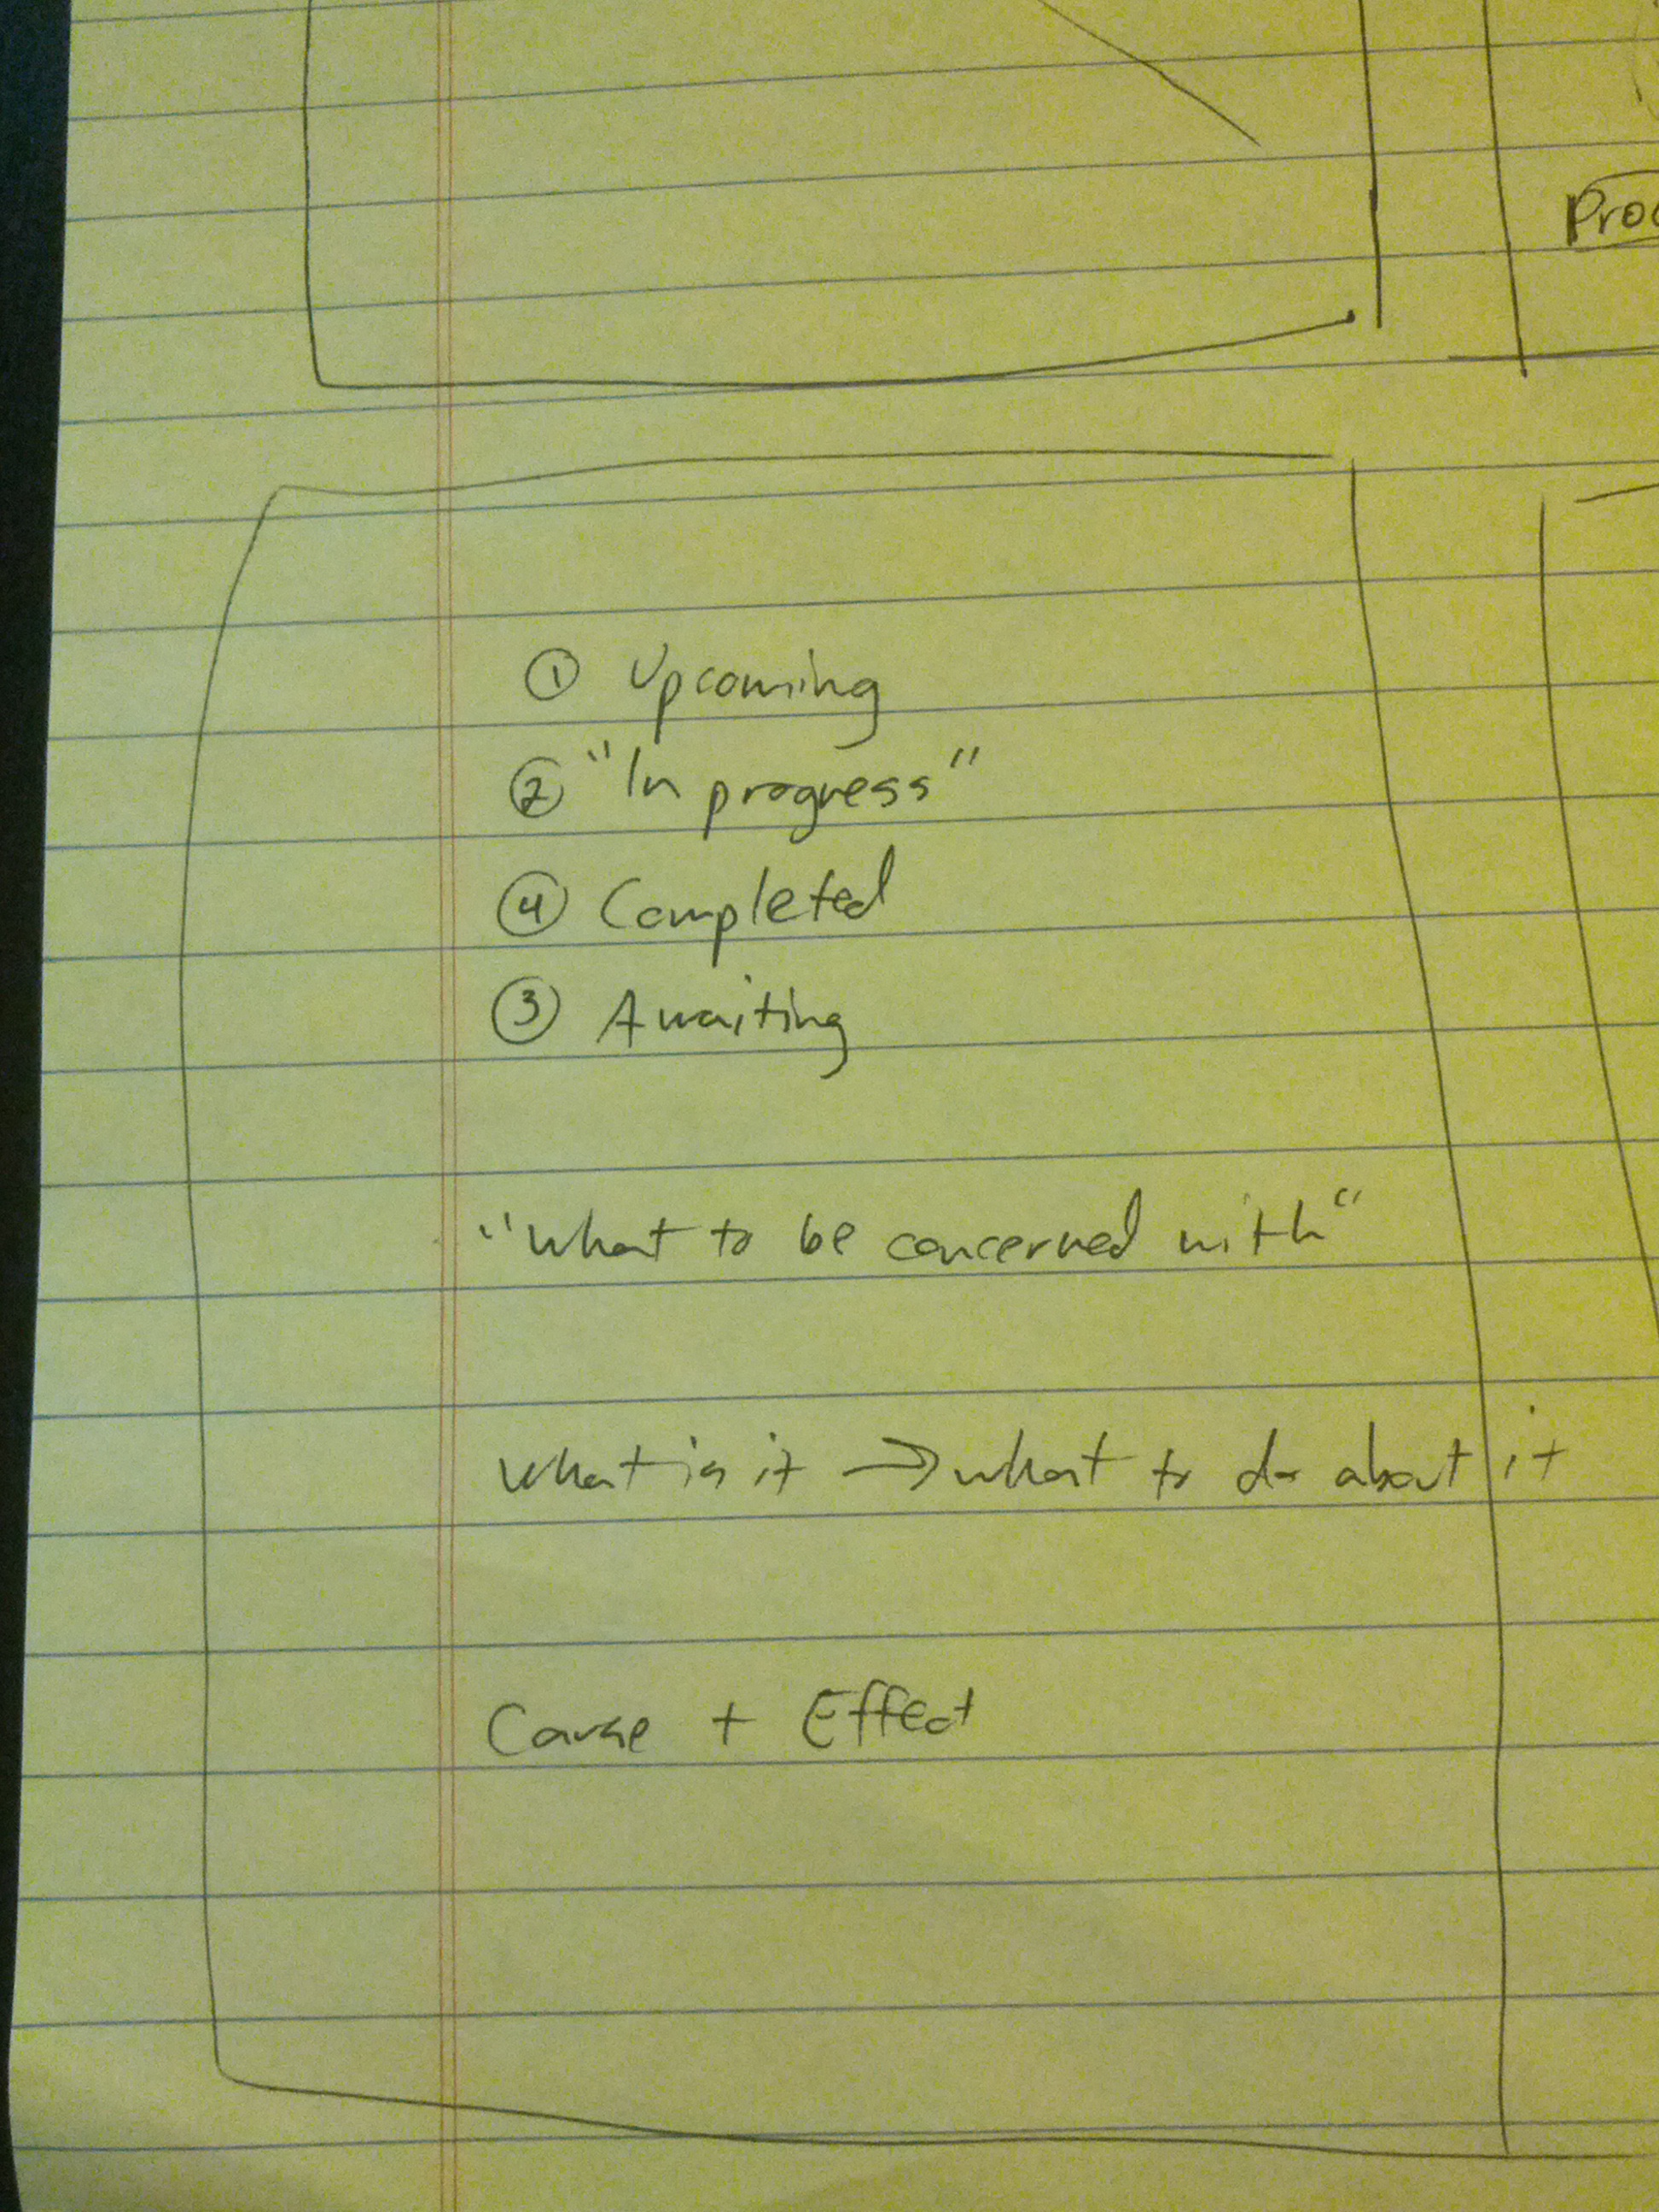 ① Upcoming
② "In progress"
④ Completed
③ Awaiting
"What to be concerned with"
What is it → what to do about it
Cause + Effect